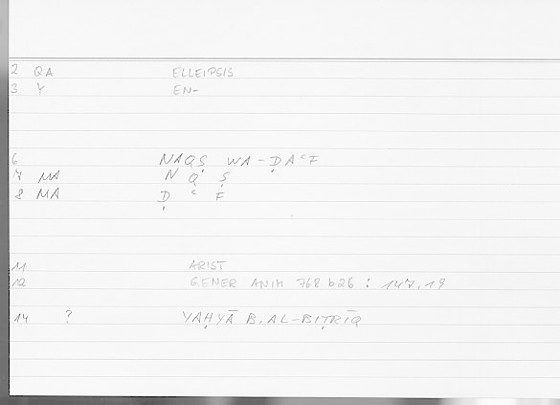 2 QA ELLEIPSIS
3 Y EN-
6 NAQṢ WA-ḌAʿF
7 MA N Q Ṣ
8 MA Ḍ ʿ F
11 ARIST
12 GENER ANIM 768 b 26 : 147,19
14 ? YAḤYĀ B. AL-BIṬRĪQ